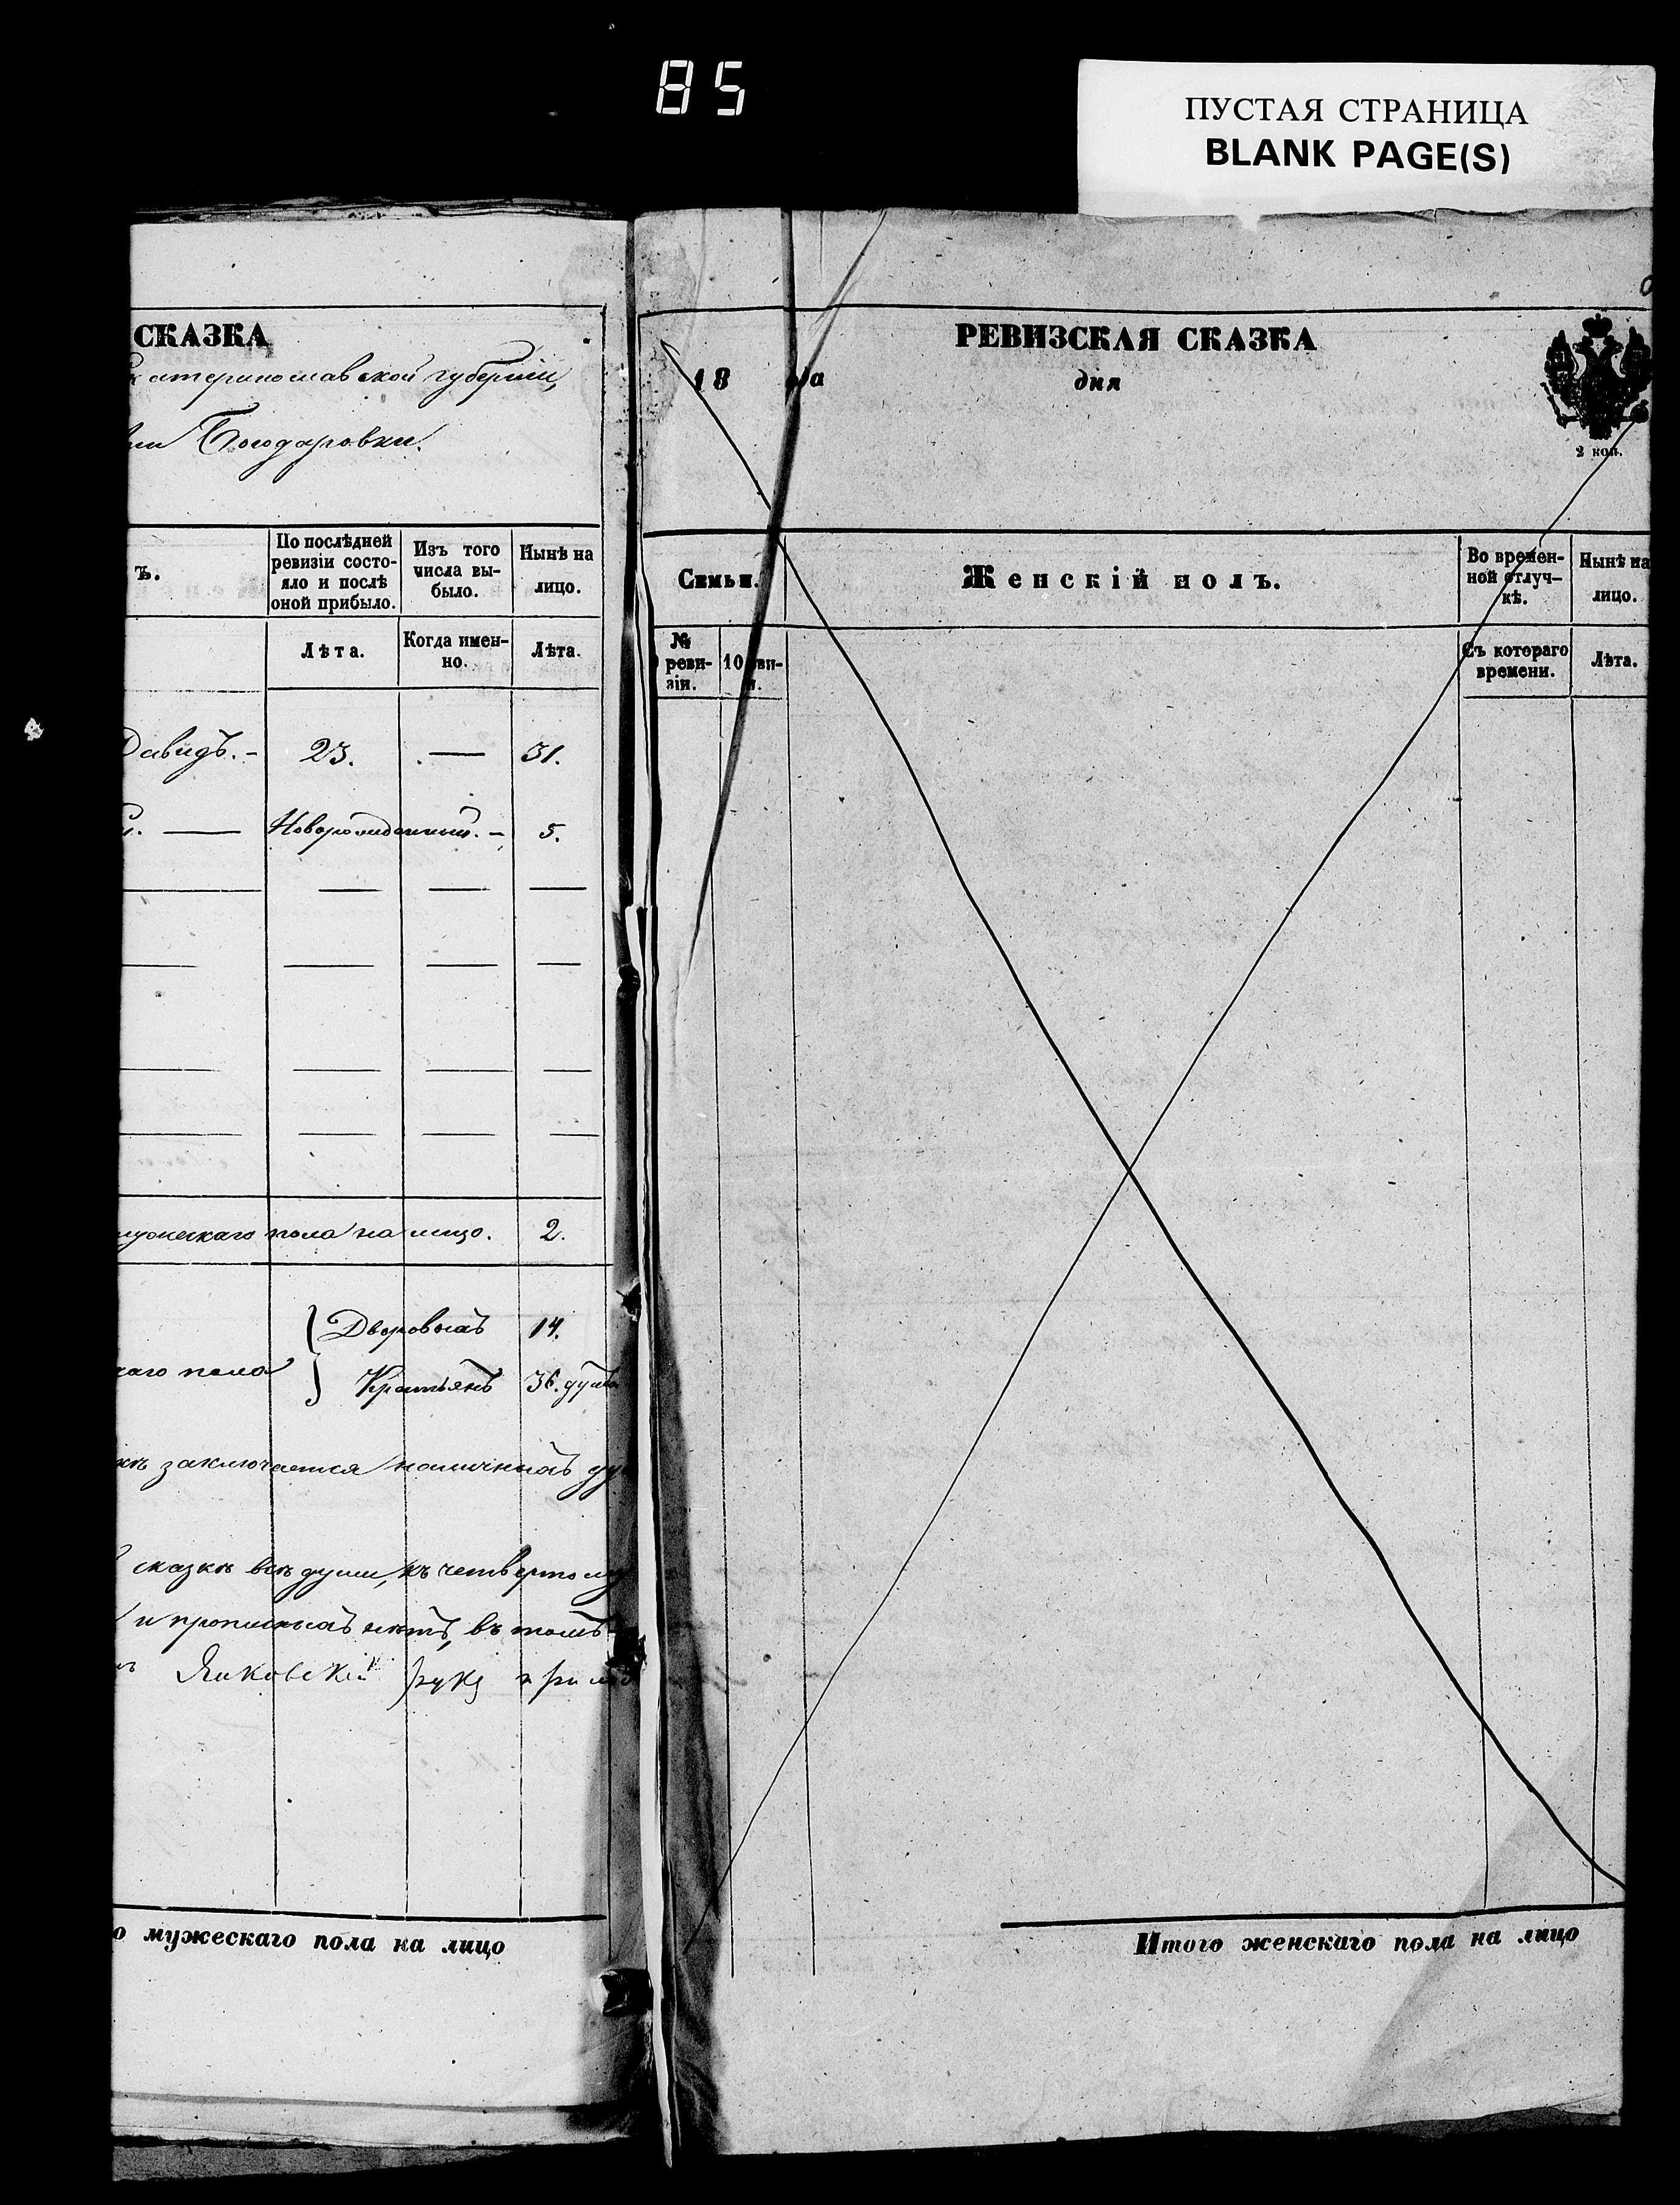 85
ПУСТАЯ СТРАНИЦА
BLANK PAGE(S)
СКАЗКА
катеринославской губерніи,
Богодаровки.
ъ.
По послѣдней ревизіи состояло и послѣ оной прибыло.
Изъ того числа выбыло.
Нынѣ на лицо.
Лѣта.
Когда именно.
Лѣта.
Давидъ. – 23. — 31.
Новорожденный. – 5.
мужескаго пола на лицо. 2.
Дворовыхъ 14.
каго пола
Крестьянъ 36. душъ
заключается наличныхъ ду
сказкѣ всѣ души, къ четвертому
и прописныхъ нѣтъ, въ томъ
Яковскій руку прило
о мужескаго пола на лицо
РЕВИЗСКАЯ СКАЗКА
18 да дня
2 коп.
Семьи.
Женскій полъ.
Во временной отлучкѣ.
Нынѣ на лицо.
№
ревизіи.
10 ви-
Съ котораго времени.
Лѣта.
Итого женскаго пола на лицо